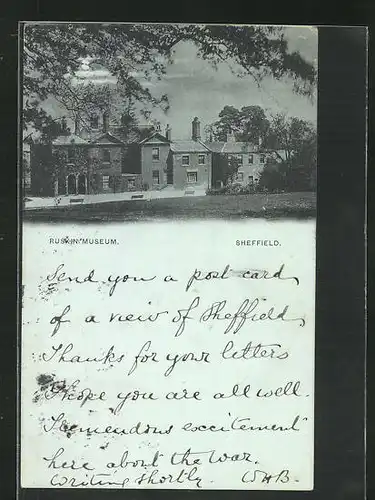 RUSKIN MUSEUM. SHEFFIELD.
Send you a post card,
of a view of Sheffield,
Thanks for your letters
I hope you are all well.
Tremendous excitement
here about the war.
Writing shortly. WHB.